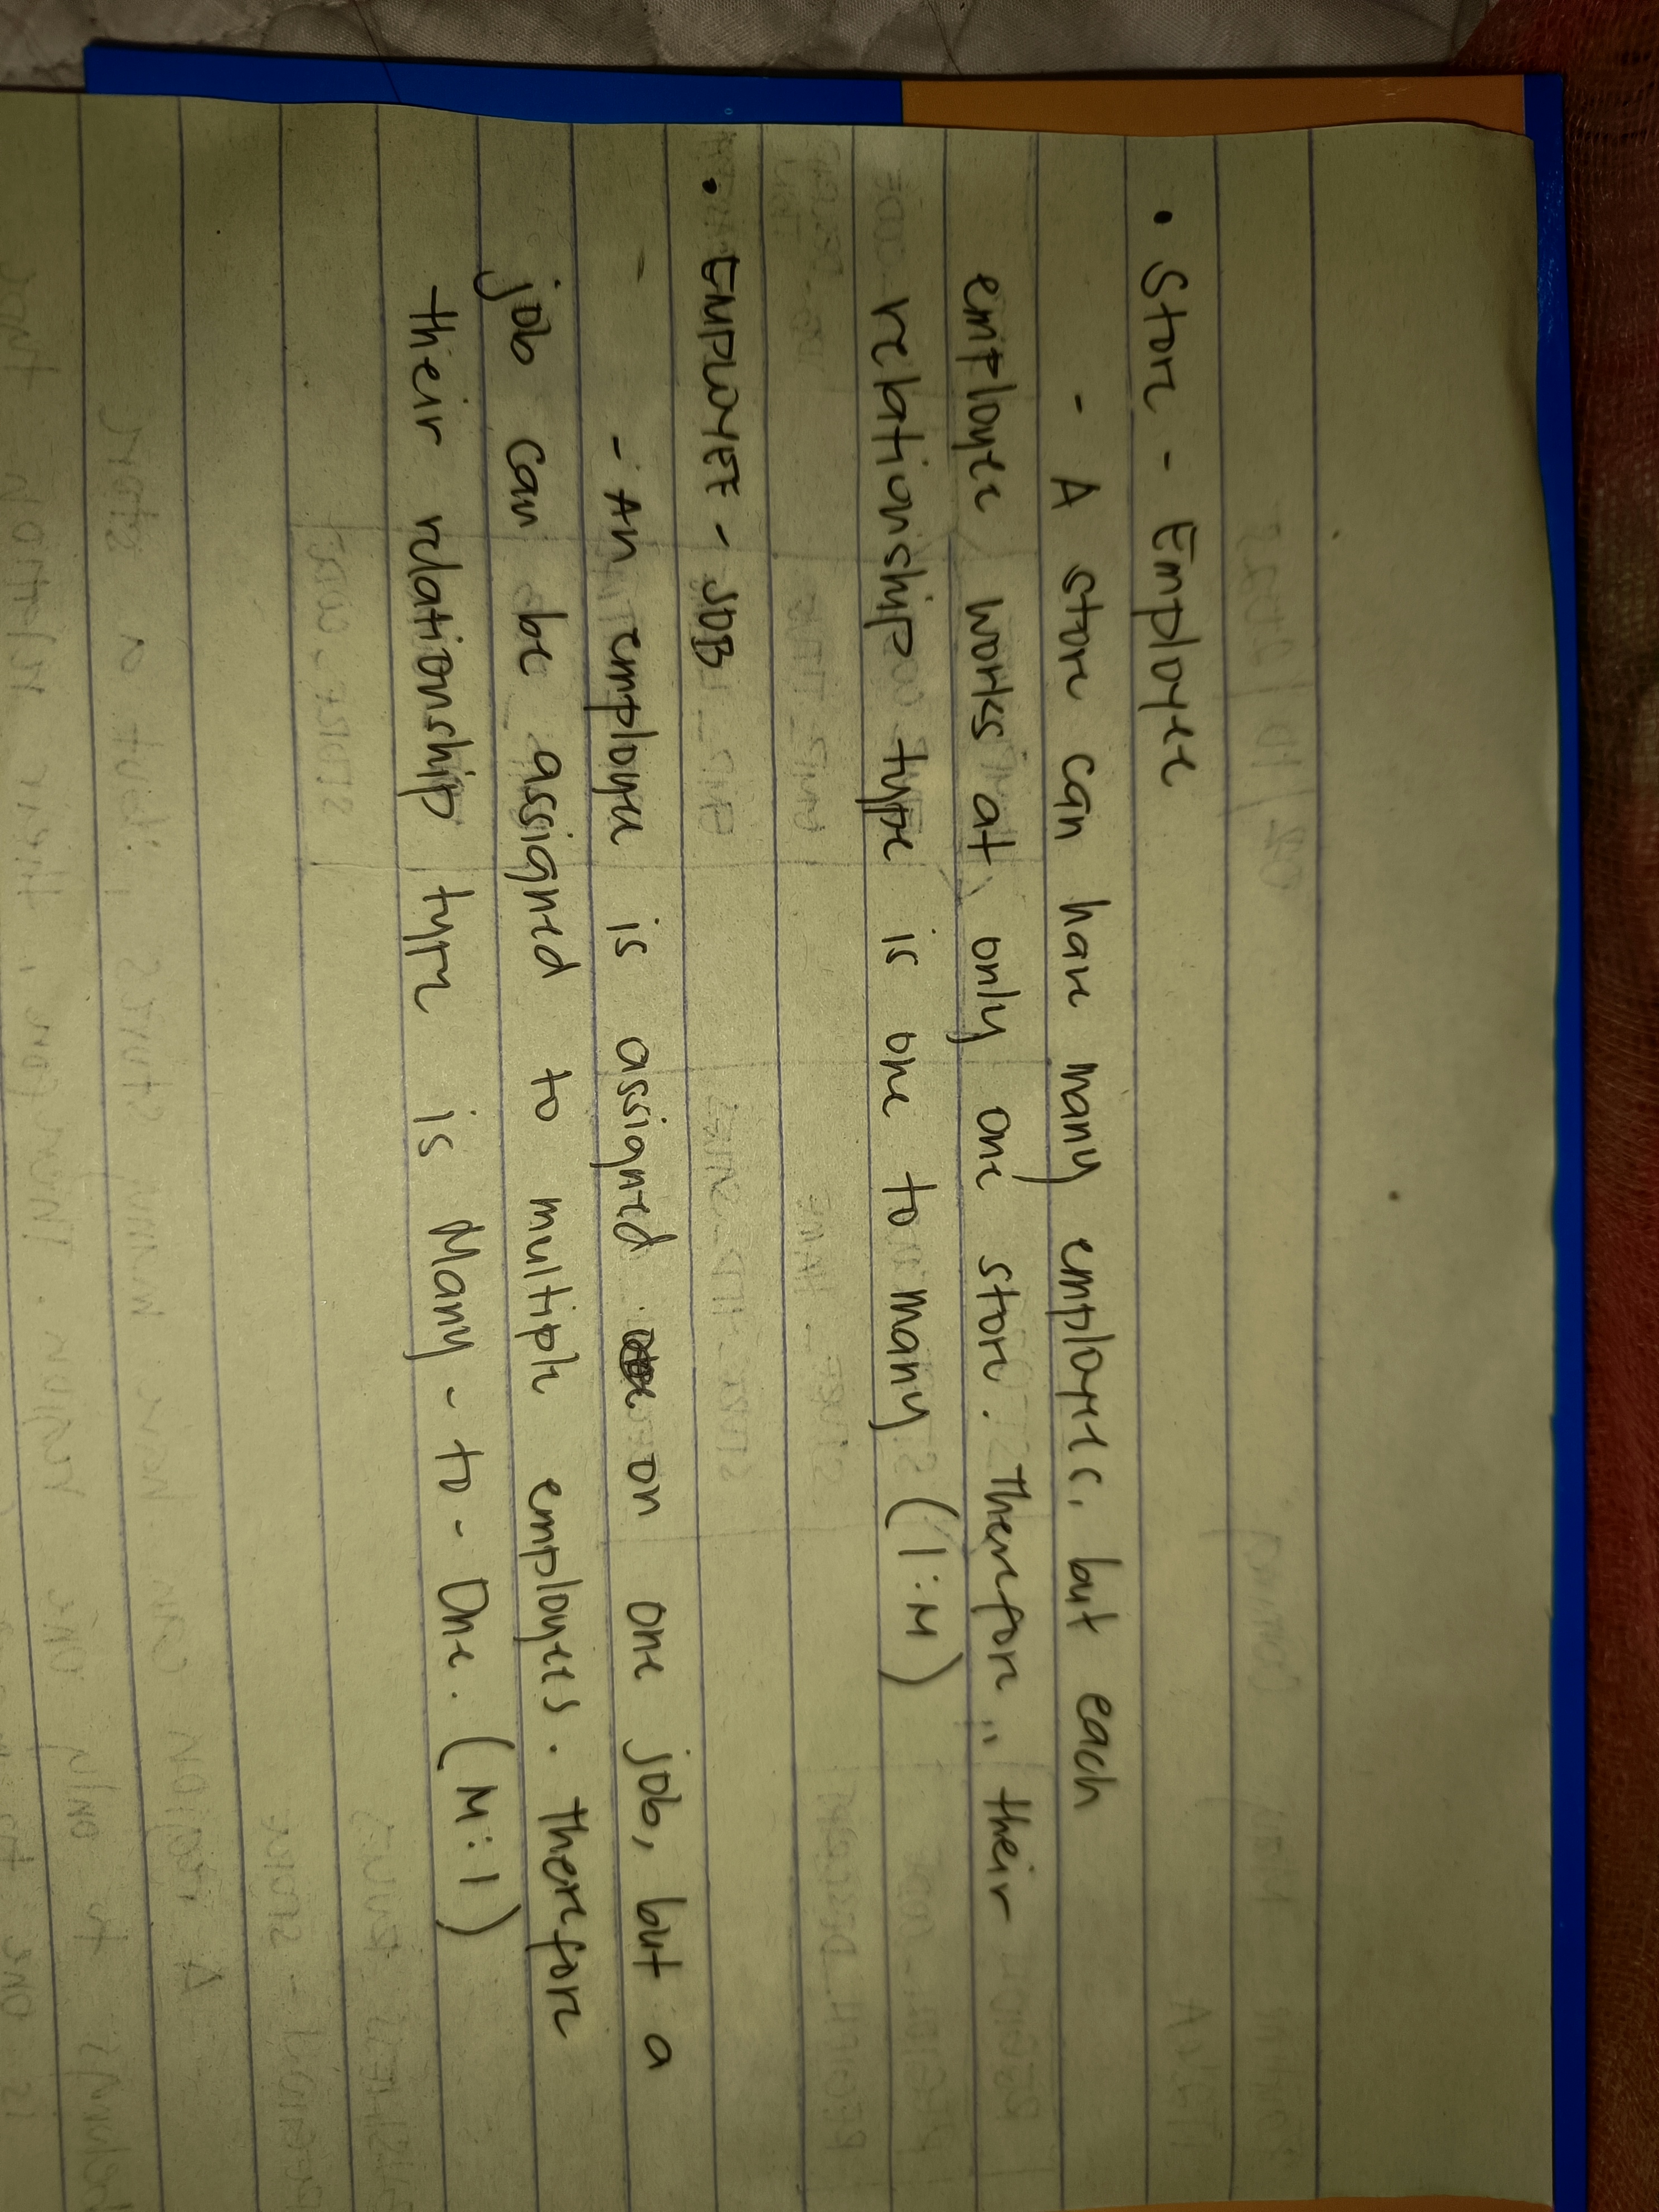 • Store - Employee
- A store can have many employees, but each
employee works at only one store. Therefore,, their
relationship type is one to many (1:M)
• EMPLOYEE - JOB
- An employee is assigned on one job, but a
job can be assigned to multiple employees. Therefore
their relationship type is Many-to-One. (M:1)